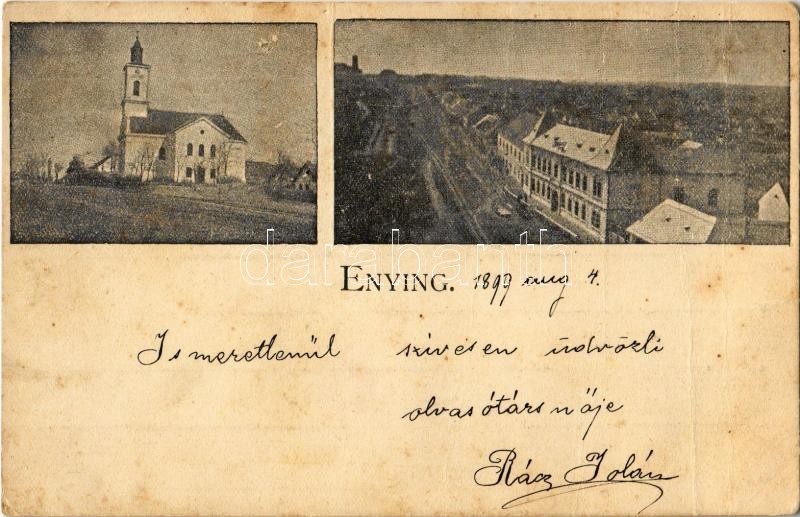 ENYING. 1899 aug 4.
Ismeretlenül szívesen üdvözli
olvasótársnője
Rácz Jolán
darabanth